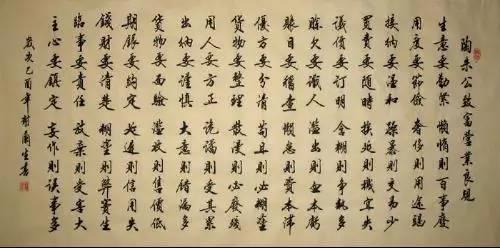 陶朱公致富營業良規
生意要勤緊 懶惰則百事廢
用度要節儉 奢侈則用途竭
接納要溫和 躁暴則交易少
買賣要隨時 挨延則機宜失
議價要訂明 含糊則爭執多
賒欠要識人 濫出則血本虧
賬目要稽查 懶怠則資本滯
優要分清 苟且則必糊塗
貨物要整理 散漫則必廢殘
用人要方正 詭譎則受其累
出納要謹慎 大意則錯漏多
貨物要面驗 濫放則售價低
期限要約定 延遲則信用失
錢財要清楚 糊塗則弊竇生
臨事要責任 放棄則受害大
主心要鎮定 妄作則誤事多
歲次己酉年 書